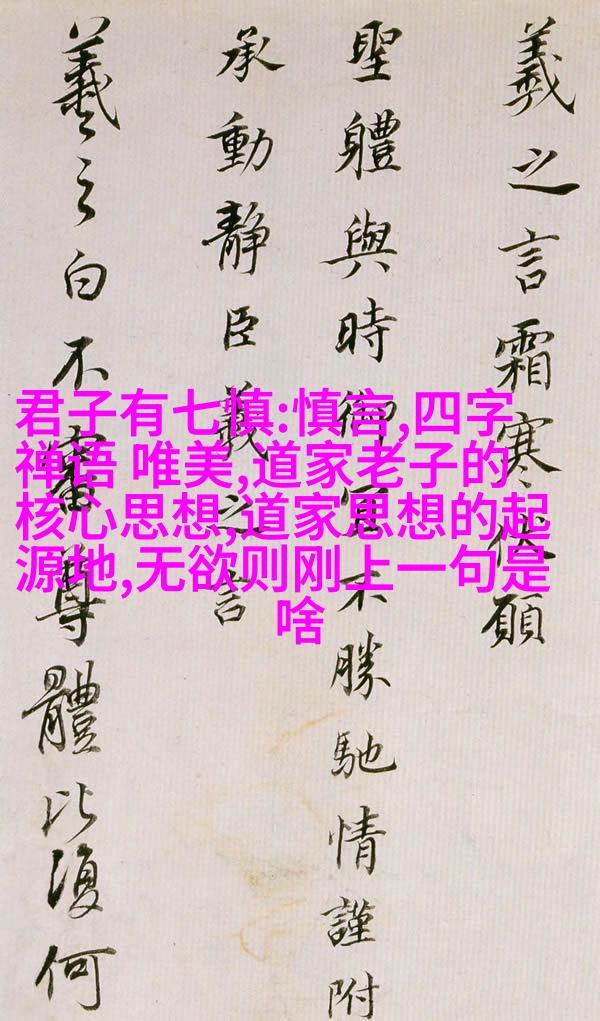 君子有七慎:慎言,四字
禅语 唯美,道家老子的
核心思想,道家思想的起
源地,无欲则刚上一句是
啥
羲之言霜寒伏願
聖體與時御宜不勝馳情謹附
承動靜臣羲之言
羲之白不審尊體比復何